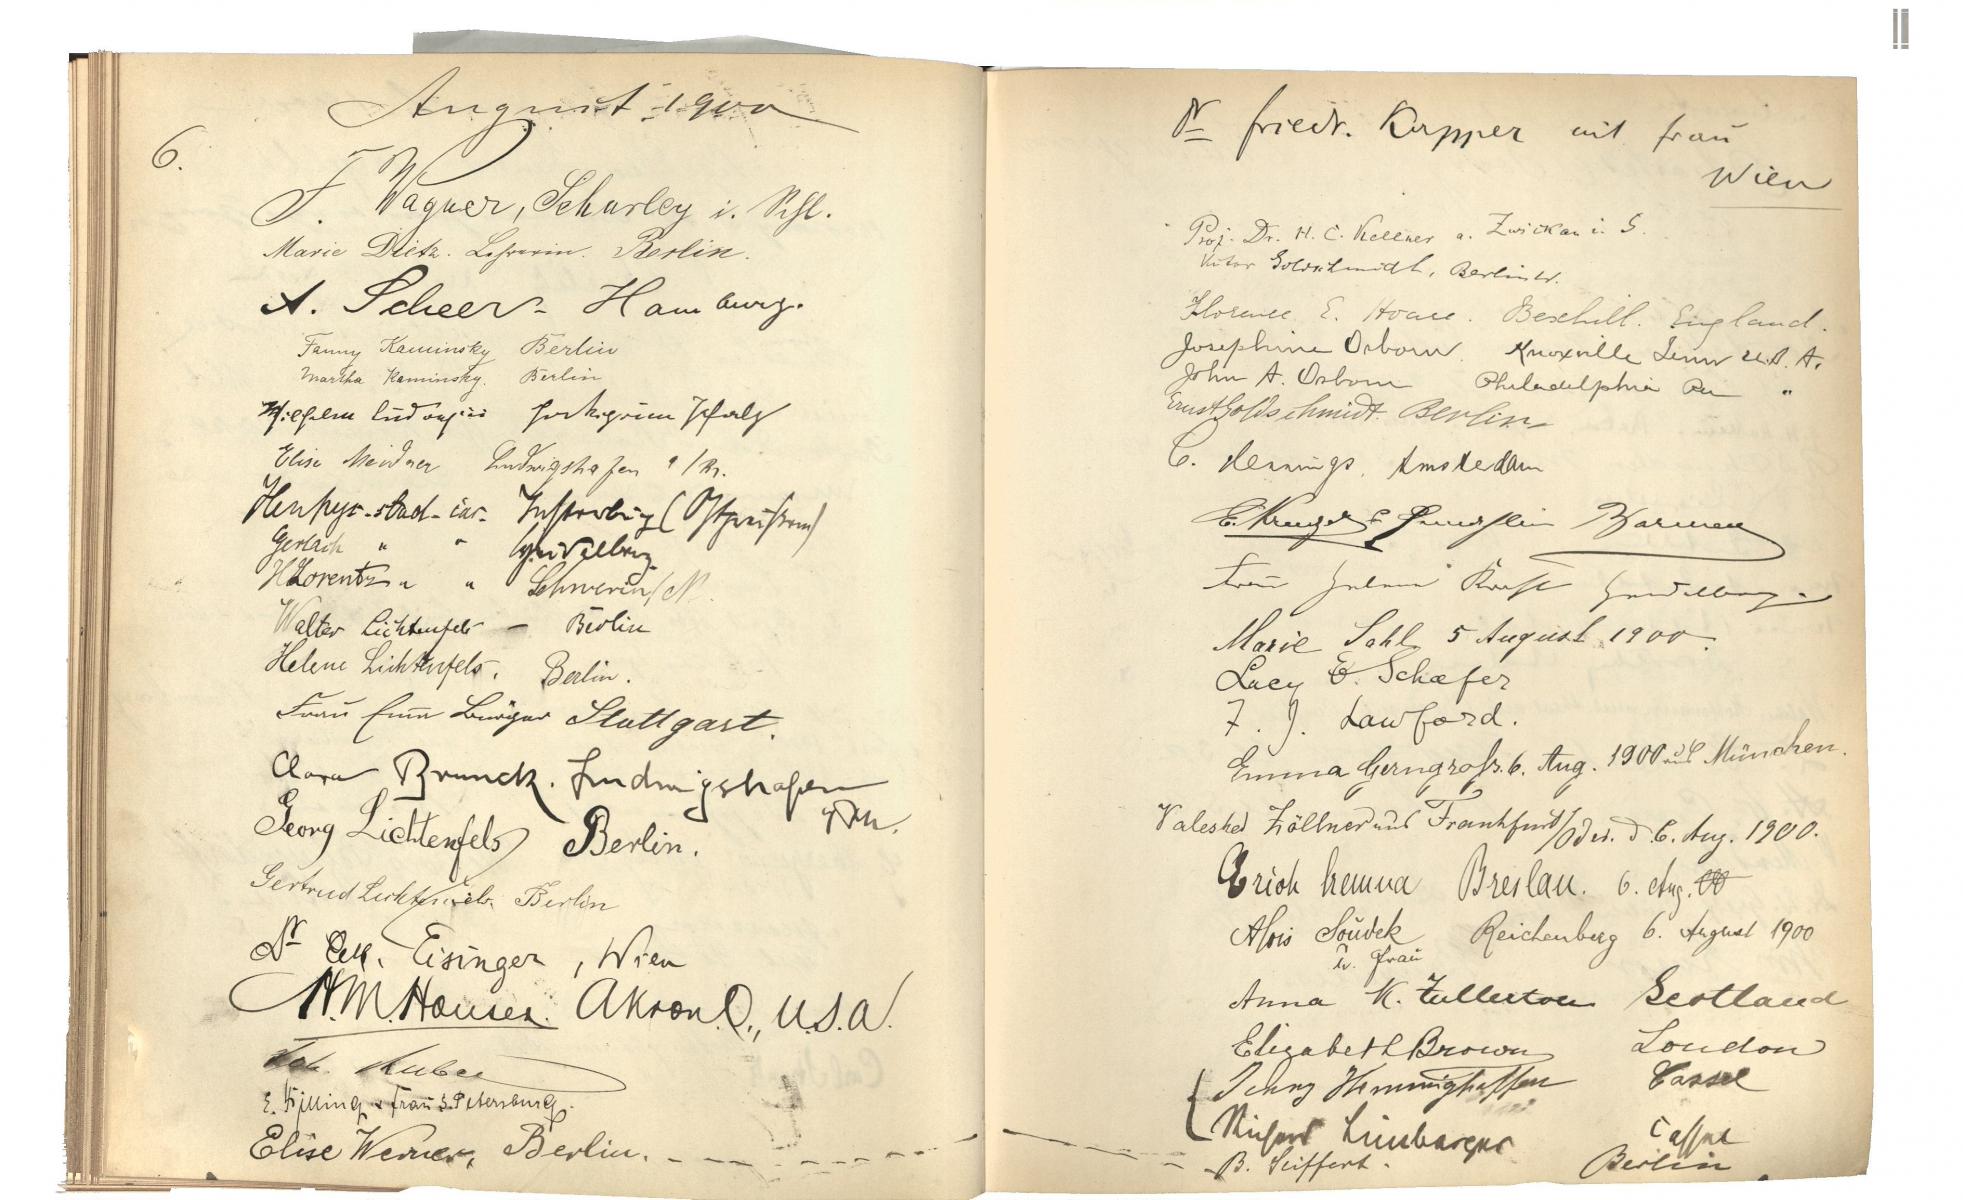 August 1900
6.
F. Wagner, Scharley i. Schl.
Marie Dietz. Lehrerin. Berlin.
A. Scheer - Hamburg.
Fanny Kaminsky Berlin
Martha Kaminsky. Berlin
Wilhelm Pfalz
Elise Meidner Ludwigshafen a/Rh.
stud. Insterburg (Ostpreußen)
Gerlach " " Heidelberg
H Lorentz " " Schwerin/M.
Walter Lichtenfels - Berlin
Helene Lichtenfels. Berlin.
Frau Emma Stuttgart.
Clara Brunck. Ludwigshafen
a/Rh.
Georg Lichtenfels Berlin.
Gertrud Lichtenfels. Berlin
Dr Eisinger, Wien
H.M. Houser. Akron. O., U.S.A.
Joh.
E. & Frau S. Petersburg.
Elise Werner, Berlin.
Dr Friedr. mit Frau
Wien
Prof. Dr. H. C. Kellner a. Zwickau i. S.
Victor Goldschmidt, Berlin
Florence E. Hoare. Bexhill. England.
Josephine Osborn. Knoxville Tenn U.S.A.
John A. Osborn Philadelphia Pa "
Ernst Goldschmidt. Berlin
C. Hennings. Amsterdam
E. Barmen
Frau Heidelberg.
Marie Sahl 5 August 1900.
Lucy E. Schaefer
F. J. Lawford.
Emma Gerngroß. 6. Aug. 1900 aus München.
Valeska Zöllner aus Frankfurt/Oder. d. 6. Aug. 1900.
Erich Breslau. 6. Aug. 00
Alois Soudek Reichenberg 6. August 1900
u. Frau
Anna K. Fullerton Scotland
Elizabeth Brown London
Jenny Hemminghoffen Cassel
Richard Limbarger Cassel
B. Seiffert. Berlin